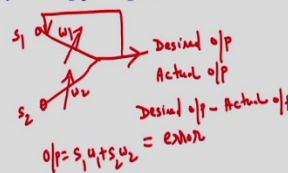 S1 w1
Desired o/p
Actual o/p
S2 w2
Desired o/p - Actual o/p
= error
o/p = S1 w1 + S2 w2